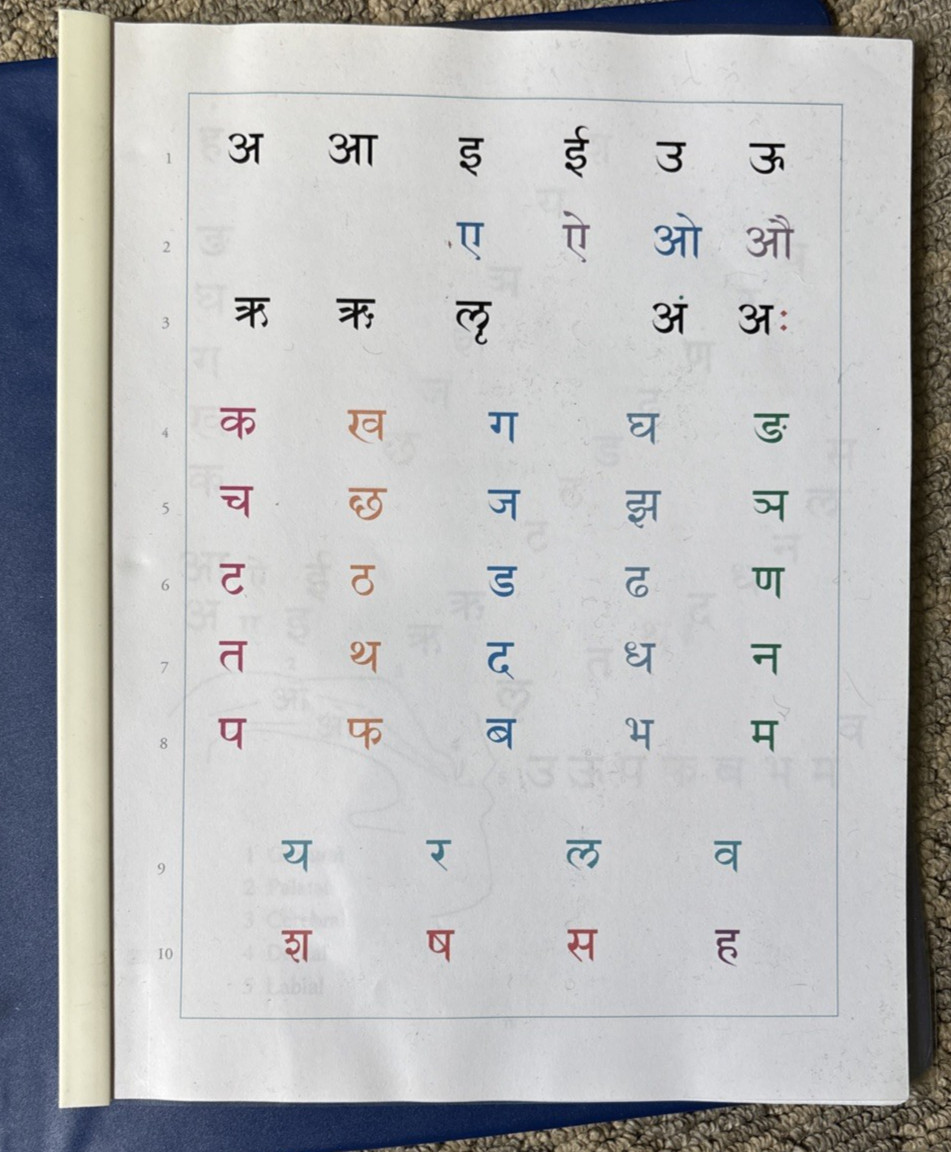 1 अ आ इ ई उ ऊ
2 ए ऐ ओ औ
3 ऋ ॠ ऌ अं अः
4 क ख ग घ ङ
5 च छ ज झ ञ
6 ट ठ ड ढ ण
7 त थ द ध न
8 प फ ब भ म
9 य र ल व
10 श ष स ह